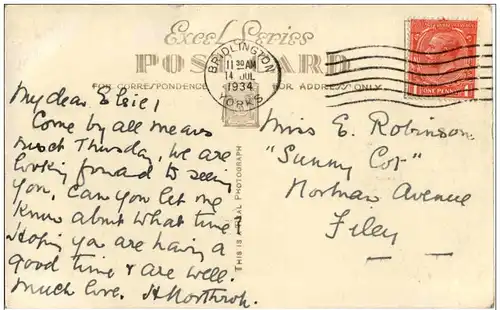 Excel Series
POSTCARD
FOR CORRESPONDENCE
FOR ADDRESS ONLY
BRIDLINGTON
11 30 AM
14 JUL
1934
YORKS
ONE PENNY
THIS IS A REAL PHOTOGRAPH
My dear Elsie,
Come by all means
next Thursday, we are
looking forward to seeing
you, Can you let me
know about what time.
Hoping you are having a
good time & are well.
Much love. H Northrop.
Miss E. Robinson
"Sunny Cot"
Norman Avenue
Filey